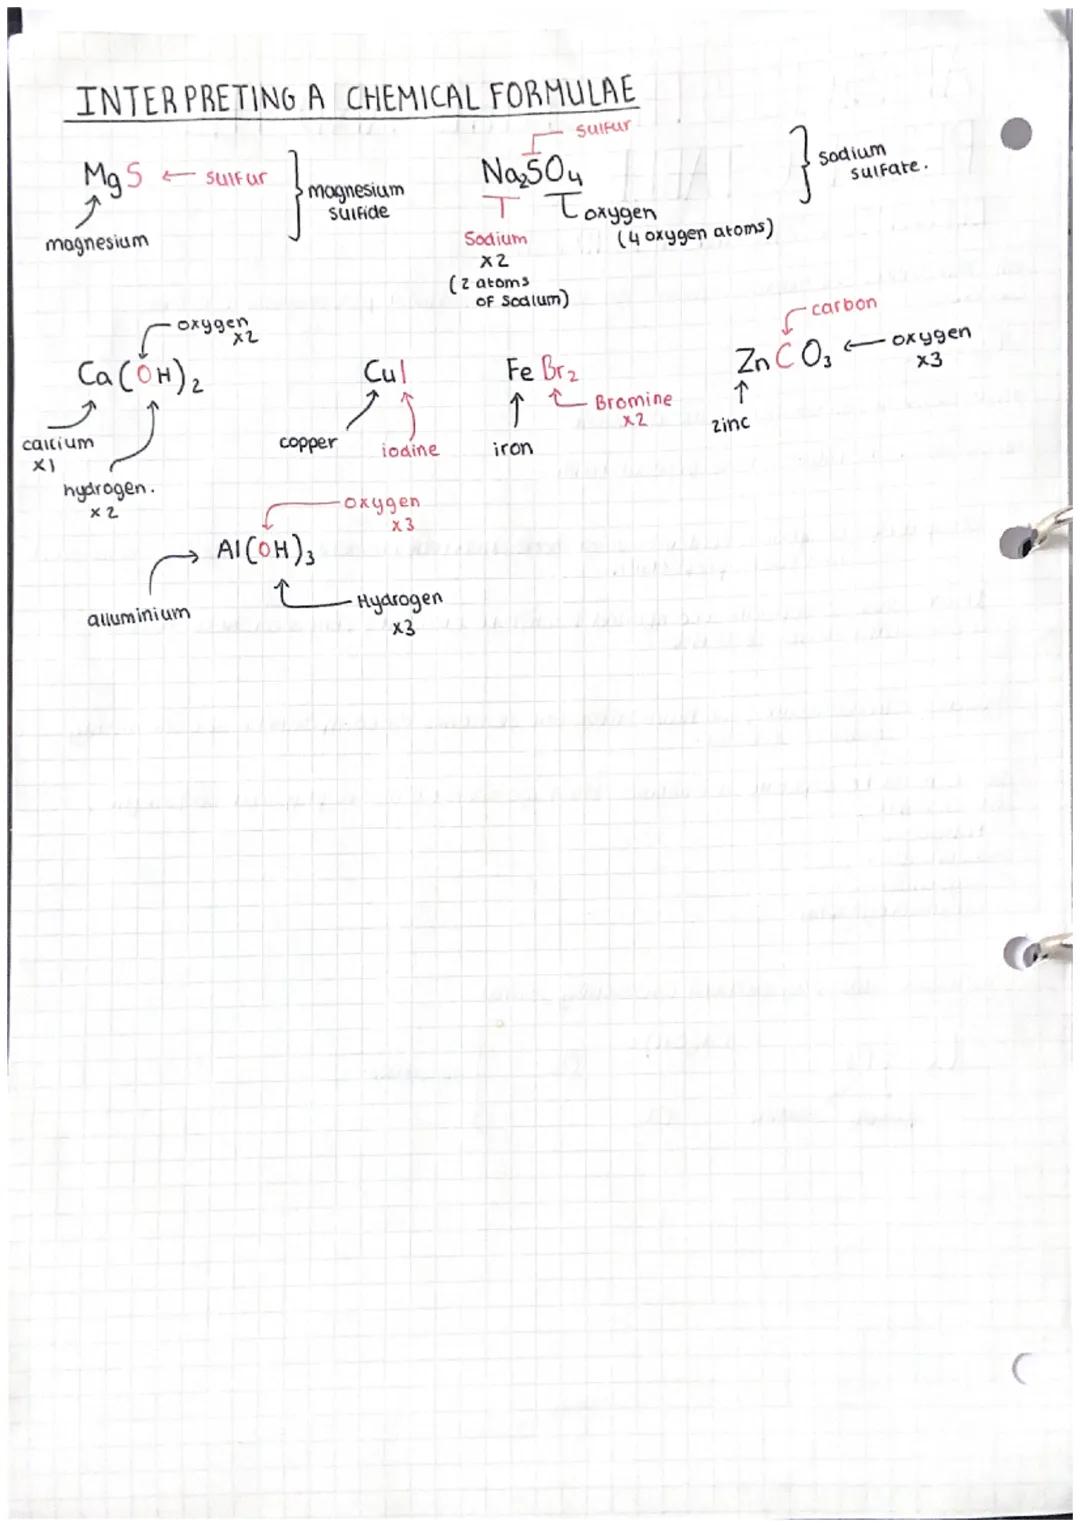 INTERPRETING A CHEMICAL FORMULAE
MgS ← sulfur
magnesium
magnesium
sulfide
sulfur
Na₂SO₄
Sodium
x2
(2 atoms
of Sodium)
oxygen
(4 oxygen atoms)
sodium
sulfate.
oxygen
x2
Ca(OH)₂
calcium
x1
hydrogen.
x2
CuI
copper
iodine
FeBr₂
iron
Bromine
x2
carbon
ZnCO₃ ← oxygen
x3
zinc
oxygen
x3
Al(OH)₃
alluminium
Hydrogen
x3